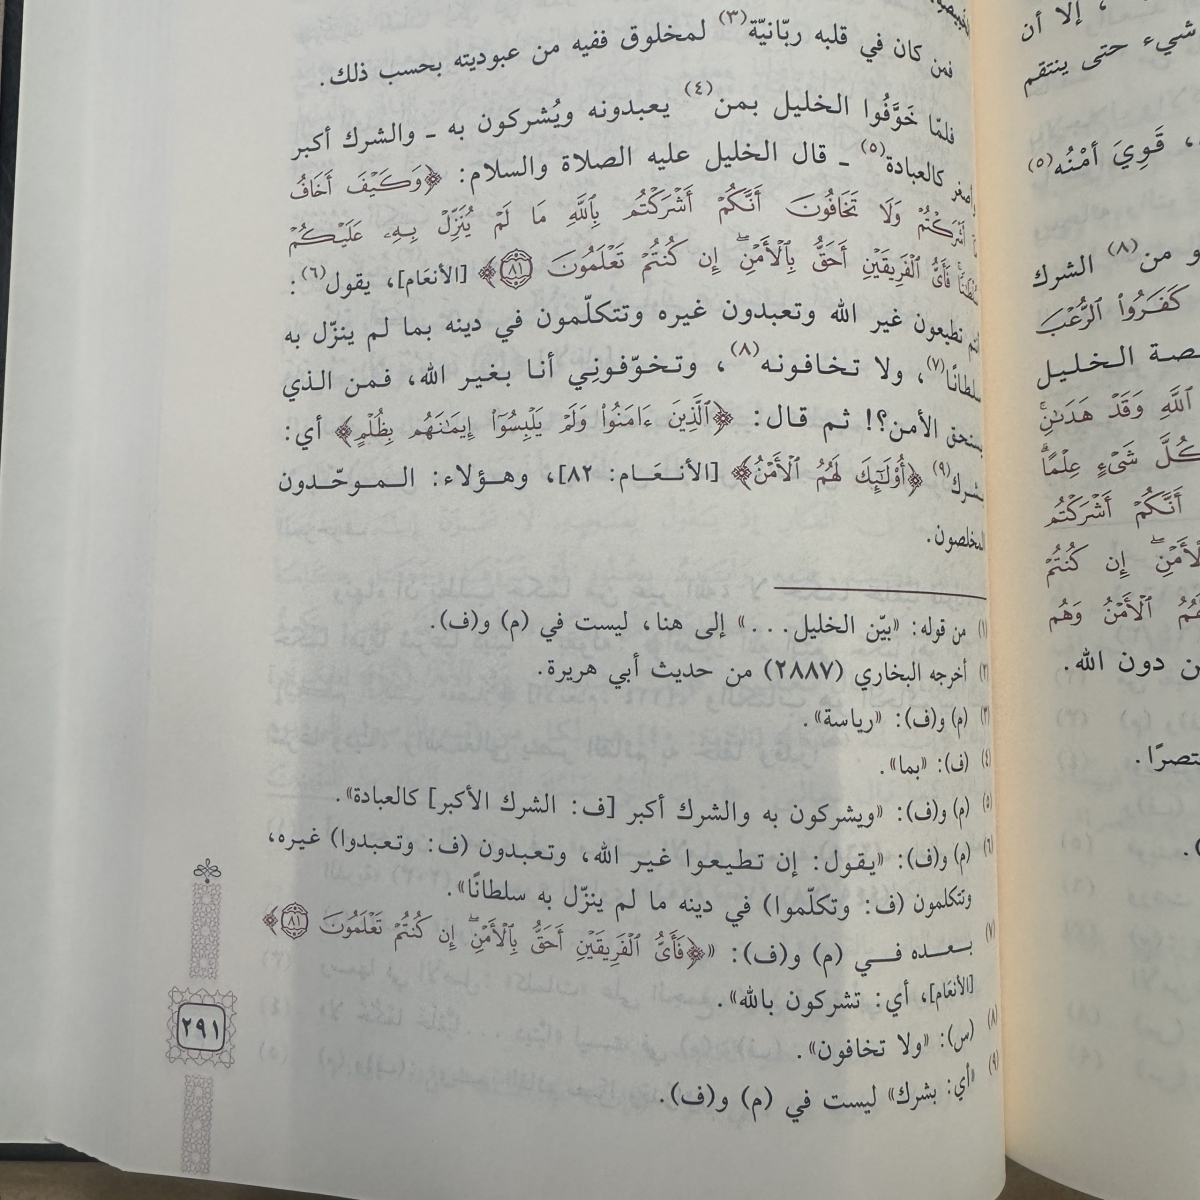 فمن كان في قلبه ربّانيّة(٣) لمخلوق ففيه من عبوديته بحسب ذلك.
فلمّا خَوَّفُوا الخليل بمن(٤) يعبدونه ويُشركون به ـ والشرك أكبر
وأصغر كالعبادة(٥) ـ قال الخليل عليه الصلاة والسلام: ﴿وَكَيْفَ أَخَافُ
مَآ أَشْرَكْتُمْ وَلَا تَخَافُونَ أَنَّكُمْ أَشْرَكْتُم بِٱللَّهِ مَا لَمْ يُنَزِّلْ بِهِۦ عَلَيْكُمْ
سُلْطَٰنًاۚ فَأَىُّ ٱلْفَرِيقَيْنِ أَحَقُّ بِٱلْأَمْنِۖ إِن كُنتُمْ تَعْلَمُونَ ٨١﴾ [الأنعَام]، يقول(٦):
أنتم تطيعون غير الله وتعبدون غيره وتتكلّمون في دينه بما لم ينزّل به
سلطانًا(٧)، ولا تخافونه(٨)، وتخوّفونِي أنا بغير الله، فمن الذي
يستحق الأمن؟! ثم قال: ﴿ٱلَّذِينَ ءَامَنُوا۟ وَلَمْ يَلْبِسُوٓا۟ إِيمَٰنَهُم بِظُلْمٍ﴾ أي:
بشرك(٩) ﴿أُو۟لَٰٓئِكَ لَهُمُ ٱلْأَمْنُ﴾ [الأنعَام: ٨٢]، وهؤلاء: الموحّدون
المخلصون.
(١) من قوله: «بيّن الخليل...» إلى هنا، ليست في (م) و(ف).
(٢) أخرجه البخاري (٢٨٨٧) من حديث أبي هريرة.
(٣) (م) و(ف): «رياسة».
(٤) (ف): «بما».
(٥) (م) و(ف): «ويشركون به والشرك أكبر [ف: الشرك الأكبر] كالعبادة».
(٦) (م) و(ف): «يقول: إن تطيعوا غير الله، وتعبدون (ف: وتعبدوا) غيره،
وتتكلمون (ف: وتكلّموا) في دينه ما لم ينزّل به سلطانًا».
(٧) بعده في (م) و(ف): «﴿فَأَىُّ ٱلْفَرِيقَيْنِ أَحَقُّ بِٱلْأَمْنِۖ إِن كُنتُمْ تَعْلَمُونَ ٨١﴾
[الأنعَام]، أي: تشركون بالله».
(٨) (س): «ولا تخافون».
(٩) «أي: بشرك» ليست في (م) و(ف).
٢٩١
إلا أن
شيء حتى ينتقم
، قَوِيَ أمْنُه(٥)
و من(٨) الشرك
كَفَرُوا۟ ٱلرُّعْبَ
صة الخليل
ٱللَّهِ وَقَدْ هَدَىٰنِۚ
كُلَّ شَىْءٍ عِلْمًاۗ
أَنَّكُمْ أَشْرَكْتُم
إِن كُنتُمْ
ٱلْأَمْنُ وَهُم
ن دون الله.